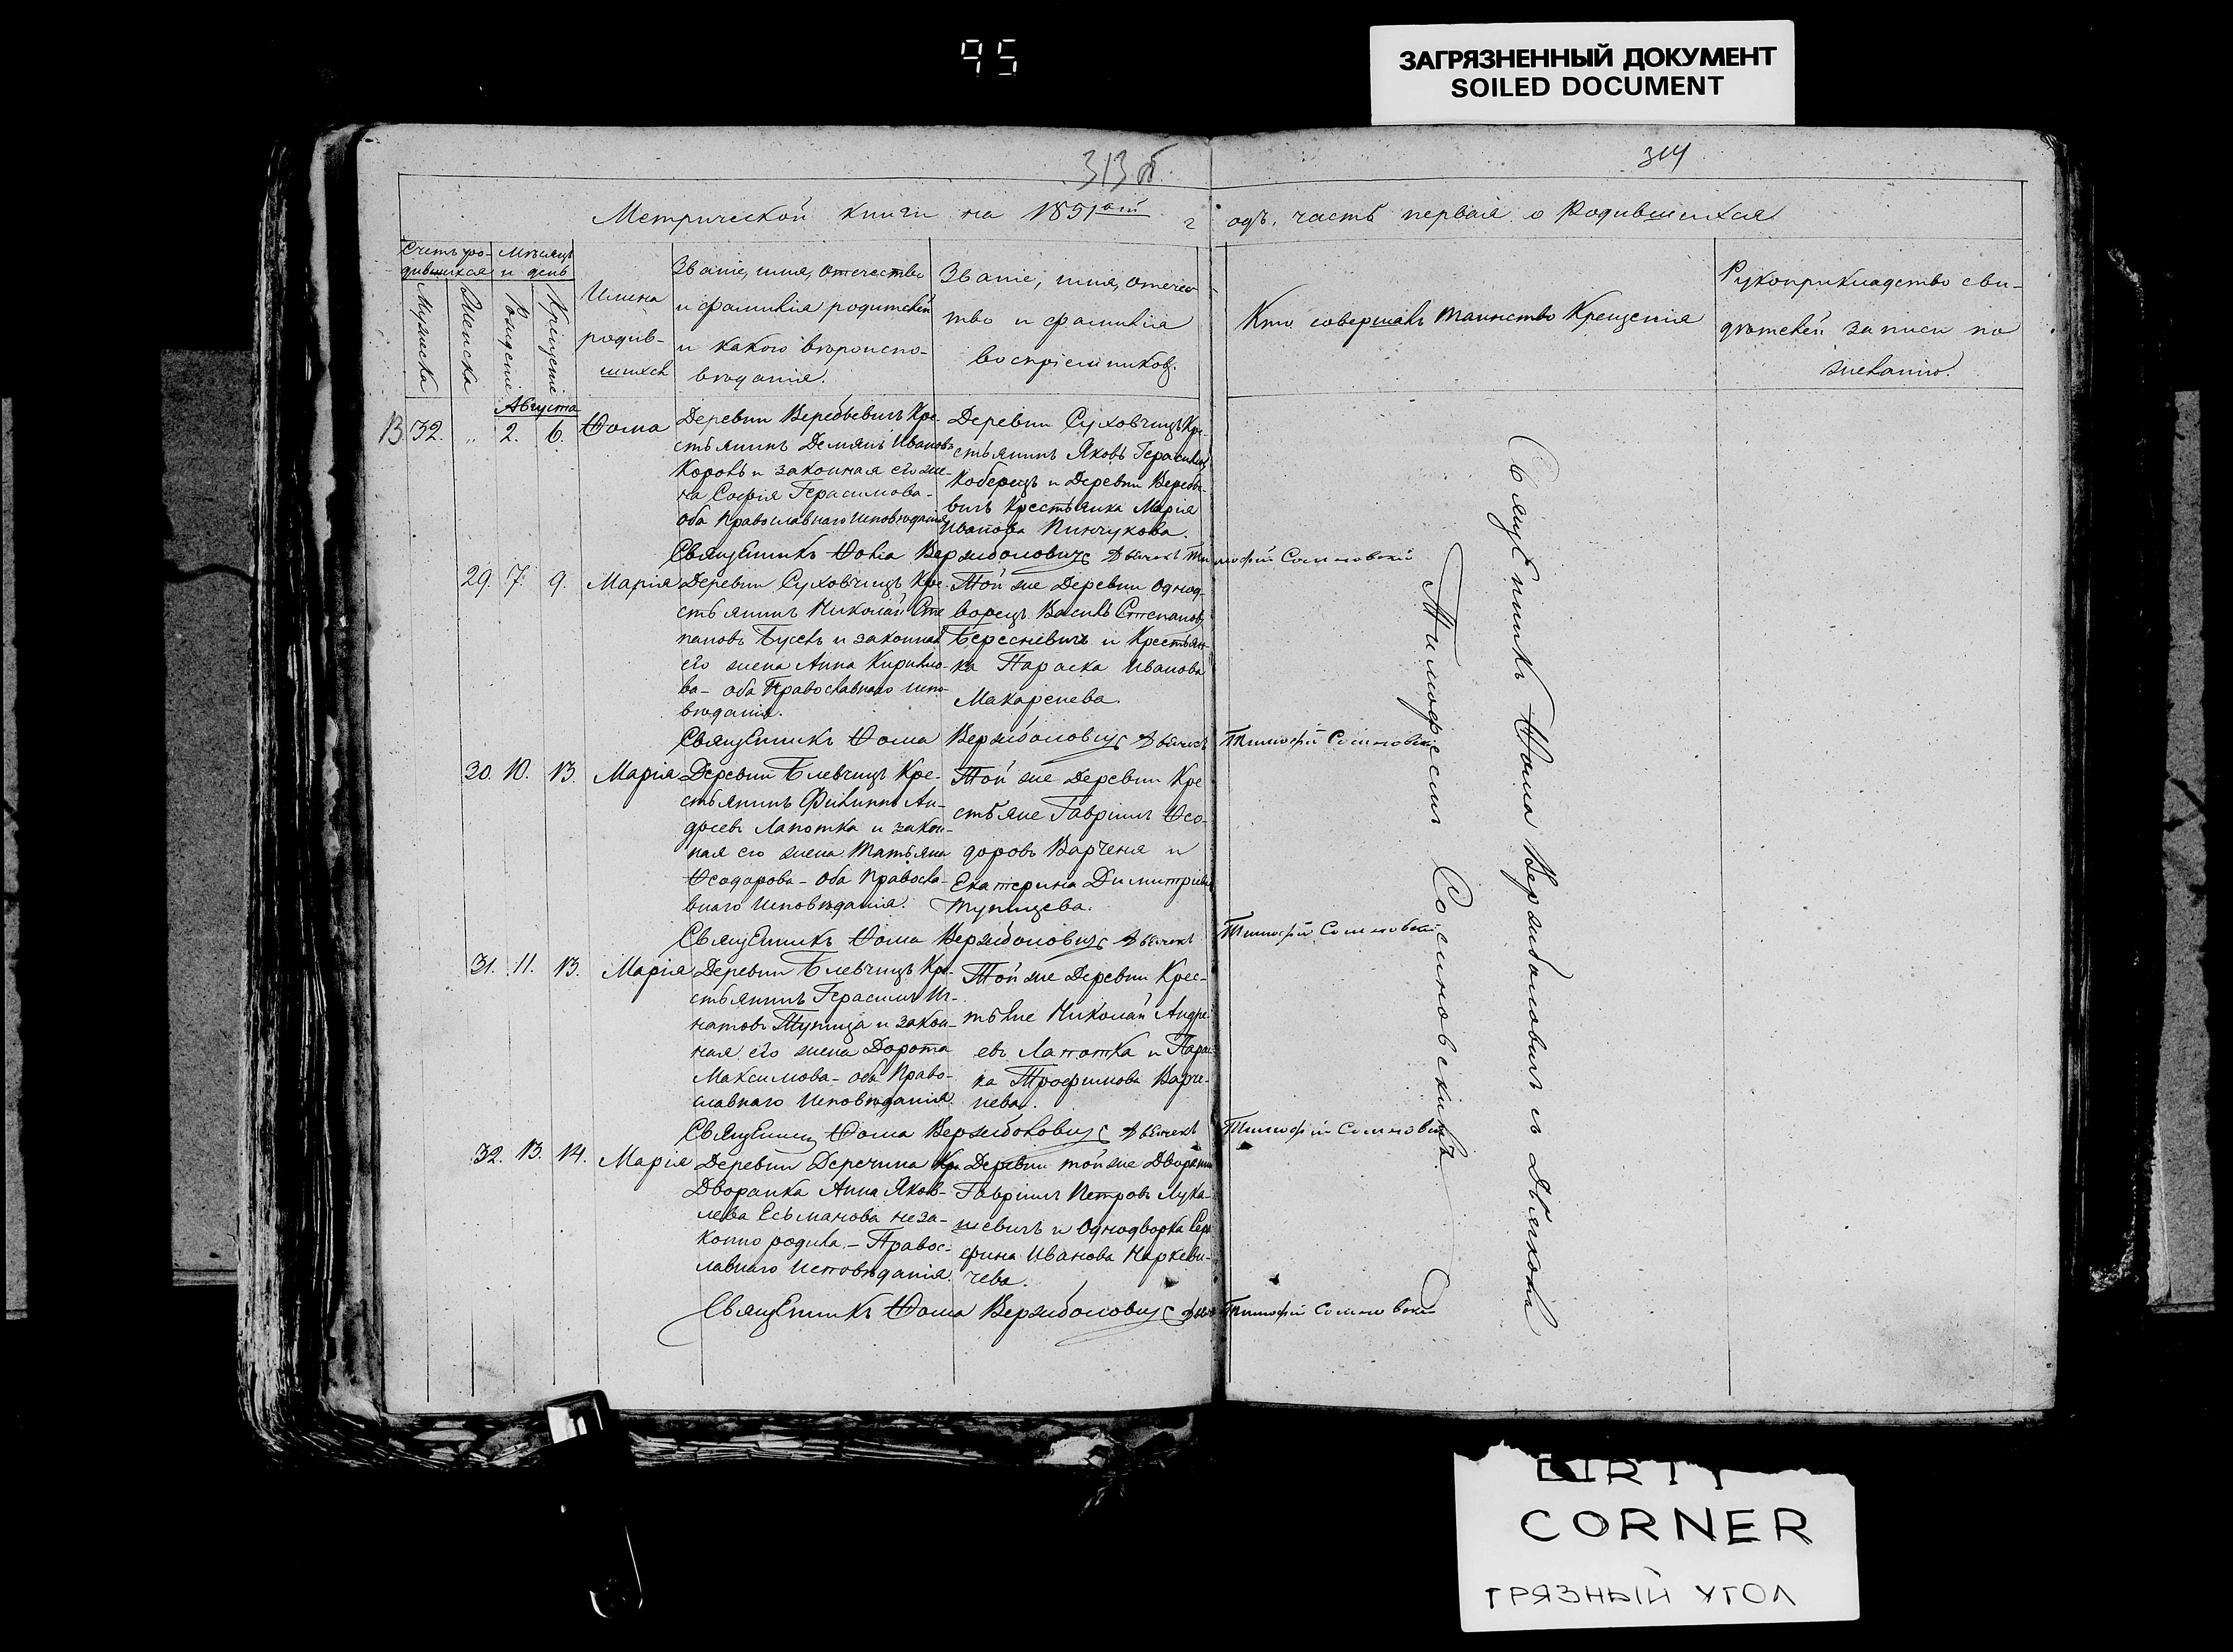 95
ЗАГРЯЗНЕННЫЙ ДОКУМЕНТ
SOILED DOCUMENT
313 об.
314
Метрической книги на 1851ый г
одъ, часть первая о Родившихся
Счетъ ро-
дившихся
Мѣсяцъ
и день
Мужеска
Женска
Рожденія
Крещенія
Имена
родив-
шихся
Званіе, имя, отечество
и фамилія родителей
и какого вѣроиспо-
вѣданія.
Званіе, имя, отечес
тво и фамилія
воспріемниковъ.
Кто совершалъ таинство Крещенія
Рукоприкладство сви-
дѣтелей записи по
желанію.
Августа
32. „ 2. 6. Ѳома
Деревни Веребьевичъ Кре-
стьянинъ Демянъ Ивановъ
Король и законная его же-
на Софія Герасимова-
оба Православнаго Исповѣданія
Деревни Суховчицъ Кре-
стьянинъ Яковъ Герасимовъ
Коберецъ и Деревни Веребье-
вичъ Крестьянка Марія
Иванова Пинчукова.
Священникъ Ѳома Вержболовичъ Дьячекъ Тимофей Сосиновскій
29. 7. 9. Марія
Деревни Суховчицъ Кре-
стьянинъ Николай Сте
пановъ Бусель и законная
его жена Анна Кирилло-
ва- оба Православнаго Испо-
вѣданія.
Той же Деревни Однод-
ворецъ Василь Степановъ
Бересневичъ и Крестьян-
ка Параска Иванова
Макаренева.
Священникъ Ѳома Вержболовичъ Дьячекъ Тимофей Сосиновскій
30. 10. 13. Марія
Деревни Блевчицъ Кре-
стьянинъ Филиппъ Ан-
дреевъ Лапотка и закон-
ная его жена Татьяна
Ѳеодорова- оба Правосла-
внаго Исповѣданія.
Той же Деревни Кре
стьяне Гавріилъ Ѳео-
доровъ Варченя и
Екатерина Димитріева
Тупицева.
Священникъ Ѳома Вержболовичъ Дьячекъ Тимофей Сосиновскій
31. 11. 13. Марія
Деревни Блевчицъ Кре-
стьянинъ Герасимъ Иг-
натовъ Тупица и закон-
ная его жена Дорота
Максимова- оба Право-
славнаго Исповѣданія
Той же Деревни Крес-
тьяне Николай Андре-
евъ Лапотка и Парас-
ка Трофимова Варче-
нева.
Священникъ Ѳома Вержболовичъ Дьячекъ Тимофей Сосиновскій
32. 13. 14. Марія
Деревни Деречина Кр.
Дворанка Анна Яков-
лева Есьманова неза-
конно родила.- Правос-
лавнаго Исповѣданія
Деревни той же Дворянинъ
Гавріилъ Петровъ Лука-
шевичъ и Однодворка Сера
фина Иванова Наркеви-
чева.
Священникъ Ѳома Вержболовичъ Дьячекъ Тимофей Сосиновскій
Священникъ Ѳома Вержболовичъ съ Дьячкомъ
Тимофеемъ Сосиновскимъ.
DIRTY
CORNER
ГРЯЗНЫЙ УГОЛ